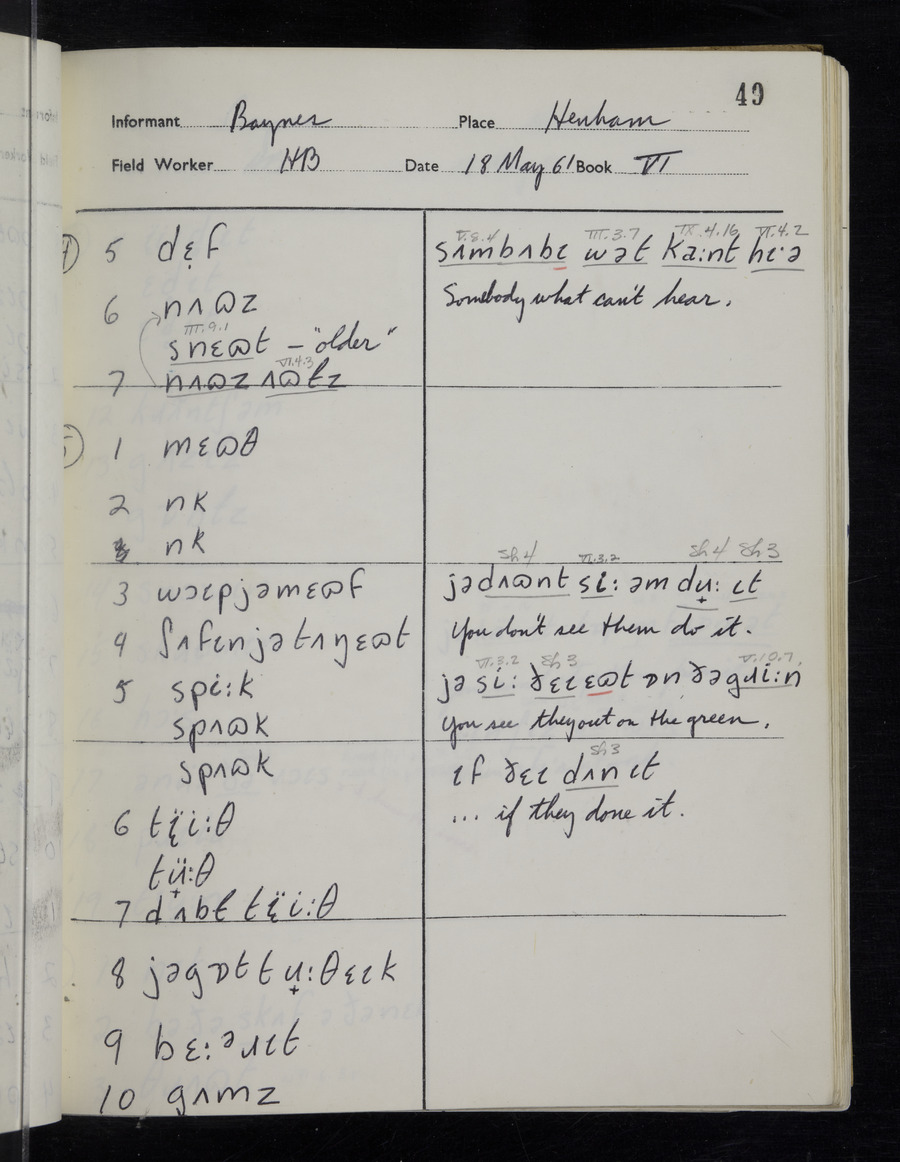 49
Informant Baynes Place Henham
Field Worker HB Date 18 May 61 Book VI
4 5 dɛ̣f
6 nʌɷz
III.9.1
snɛɷt – "older"
VI.4.3
7 nʌɷz ʌɷɫz
5 1 mɛɷθ
2 nk
nk
3 wɔɪpjəmɛɷf
4 ʃʌfɪnjətʌŋɛɷt
5 spi:k
spʌɷk
spʌɷk
6 tï̞i:θ
tü̟:θ
7 dʌbɫ tï̞i:θ
8 jəgɒt tu̟:θɛɪk
9 bɛ:əɹɪt
10 gʌmz
V.8.4 III.3.7 IX.4.16 VI.4.2
sʌmbʌbɪ wət ka:nt hɪ·ə
Somebody what can't hear.
Sh 4 VI.3.2 Sh 4 Sh 3
jədʌɷnt si: əm du̟: ɪt
You don't see them do it.
VI.3.2 Sh 3 V.10.7.
jə si: ðɛɪ ɛɷt ɒn ðəgɹi:n
You see they out on the green.
Sh 3
ɪf ðɛɪ dʌn ɪt
... if they done it.